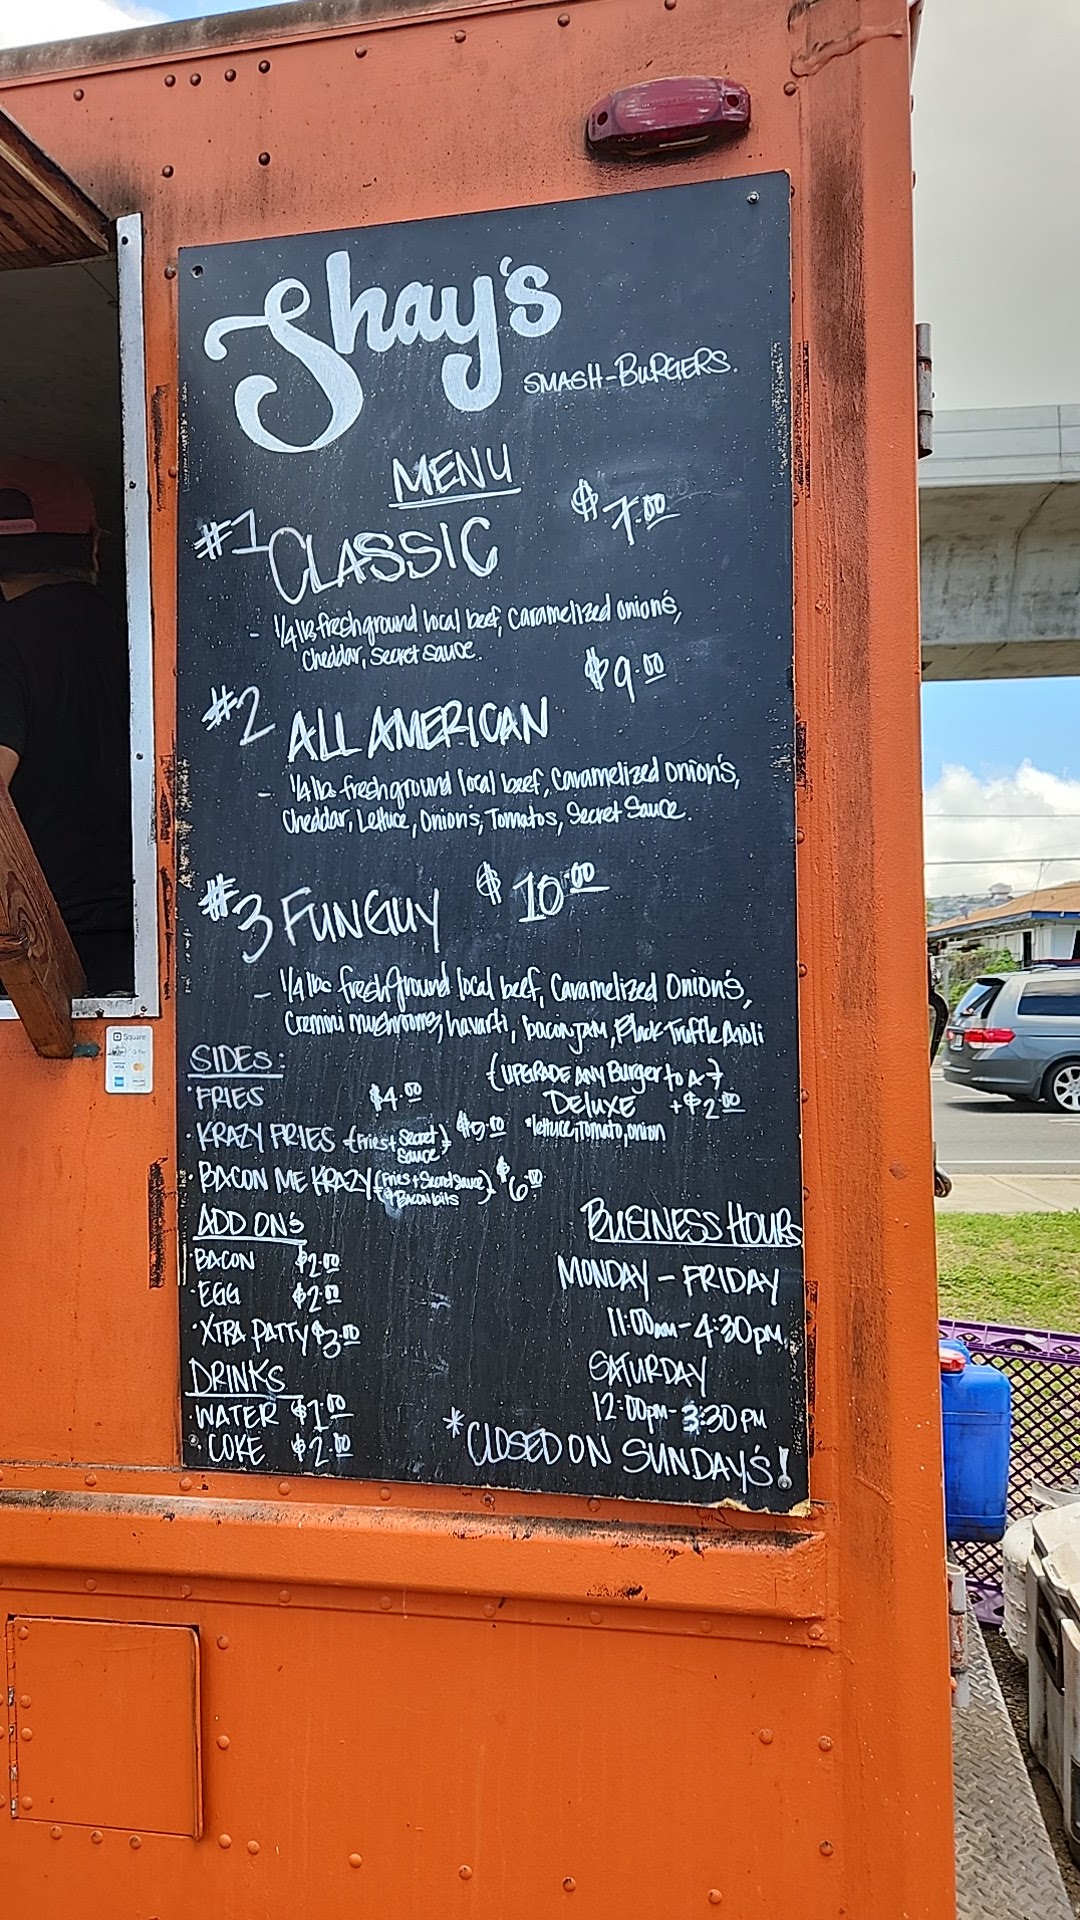 Shay's
SMASH-BURGERS.
MENU
#1 CLASSIC $7.00
- 1/4 lb fresh ground local beef, Caramelized onion's,
Cheddar, secret sauce.
#2 ALL AMERICAN $9.00
- 1/4 lb. fresh ground local beef, Caramelized onion's,
Cheddar, Lettuce, Onion's, Tomatos, Secret Sauce.
#3 FUNGUY $10.00
- 1/4 lb. fresh ground local beef, Caramelized Onion's,
Cremini mushrooms, havarti, bacon JAM, Black Truffle Aioli
SIDEs:
·FRIES $4.00
·KRAZY FRIES (Fries + Secret Sauce) $5.00
·BACON ME KRAZY (Fries + Secret Sauce & BACON bits) $6.00
(UPGRADE ANY Burger to A →
DELUXE +$2.00
*lettuce, Tomato, onion
ADD ON's
·BACON $2.00
·EGG $2.00
·XTRA PATTY $3.00
DRINKS
·WATER $1.00
·COKE $2.00
BUSINESS HOURS
MONDAY - FRIDAY
11:00am - 4:30pm.
SATURDAY
12:00PM - 3:30PM
*CLOSED ON SUNDAY'S!
Square
VISA